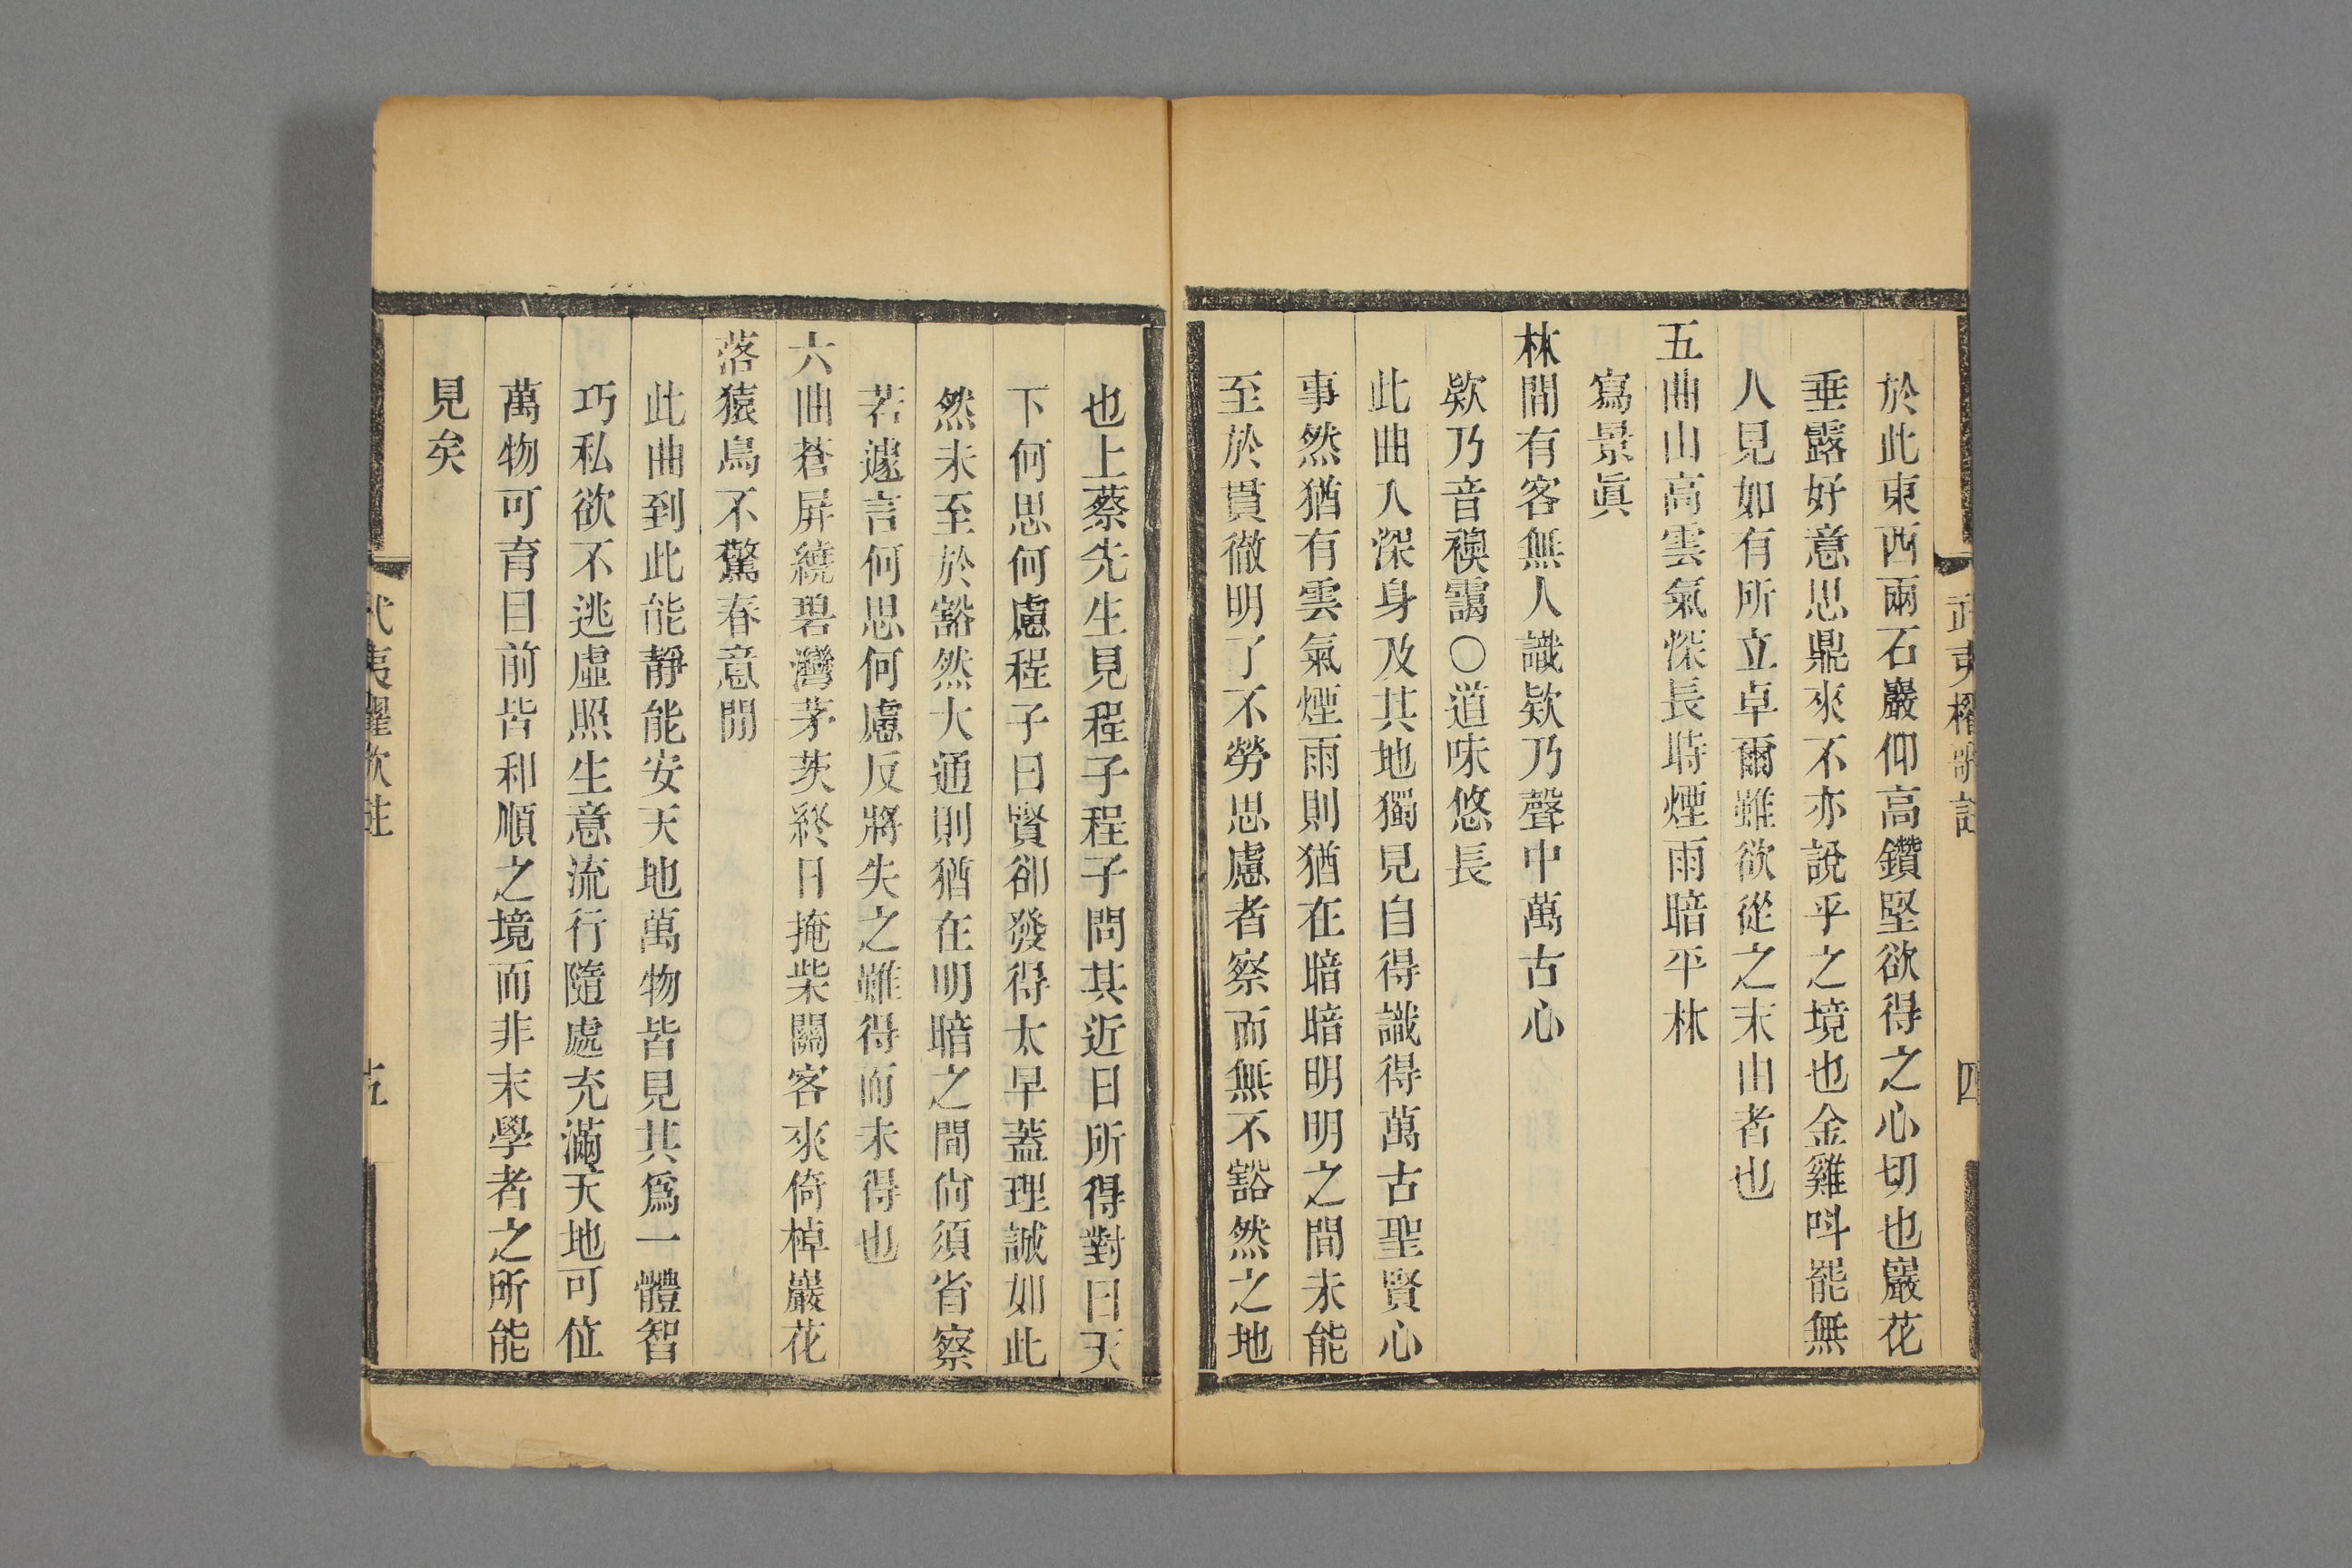 武夷櫂歌註
四
於此東西兩石巖仰高鑽堅欲得之心切也巖花
垂露好意思鼎來不亦說乎之境也金雞呌罷無
人見如有所立卓爾雖欲從之末由者也
五曲山高雲氣深長時煙雨暗平林
寫景眞
林間有客無人識欵乃聲中萬古心
欵乃音襖靄○道味悠長
此曲入深身及其地獨見自得識得萬古聖賢心
事然猶有雲氣煙雨則猶在暗暗明明之間未能
至於貫徹明了不勞思慮者察而無不豁然之地
也上蔡先生見程子程子問其近日所得對曰天
下何思何慮程子曰賢卻發得太早蓋理誠如此
然未至於豁然大通則猶在明暗之間尙須省察
若遽言何思何慮反將失之雖得而未得也
六曲蒼屏繞碧灣茅茨終日掩柴關客來倚棹巖花
落猿鳥不驚春意閒
此曲到此能靜能安天地萬物皆見其爲一體智
巧私欲不逃虛照生意流行隨處充滿天地可位
萬物可育目前皆和順之境而非末學者之所能
見矣
武夷櫂歌註
五